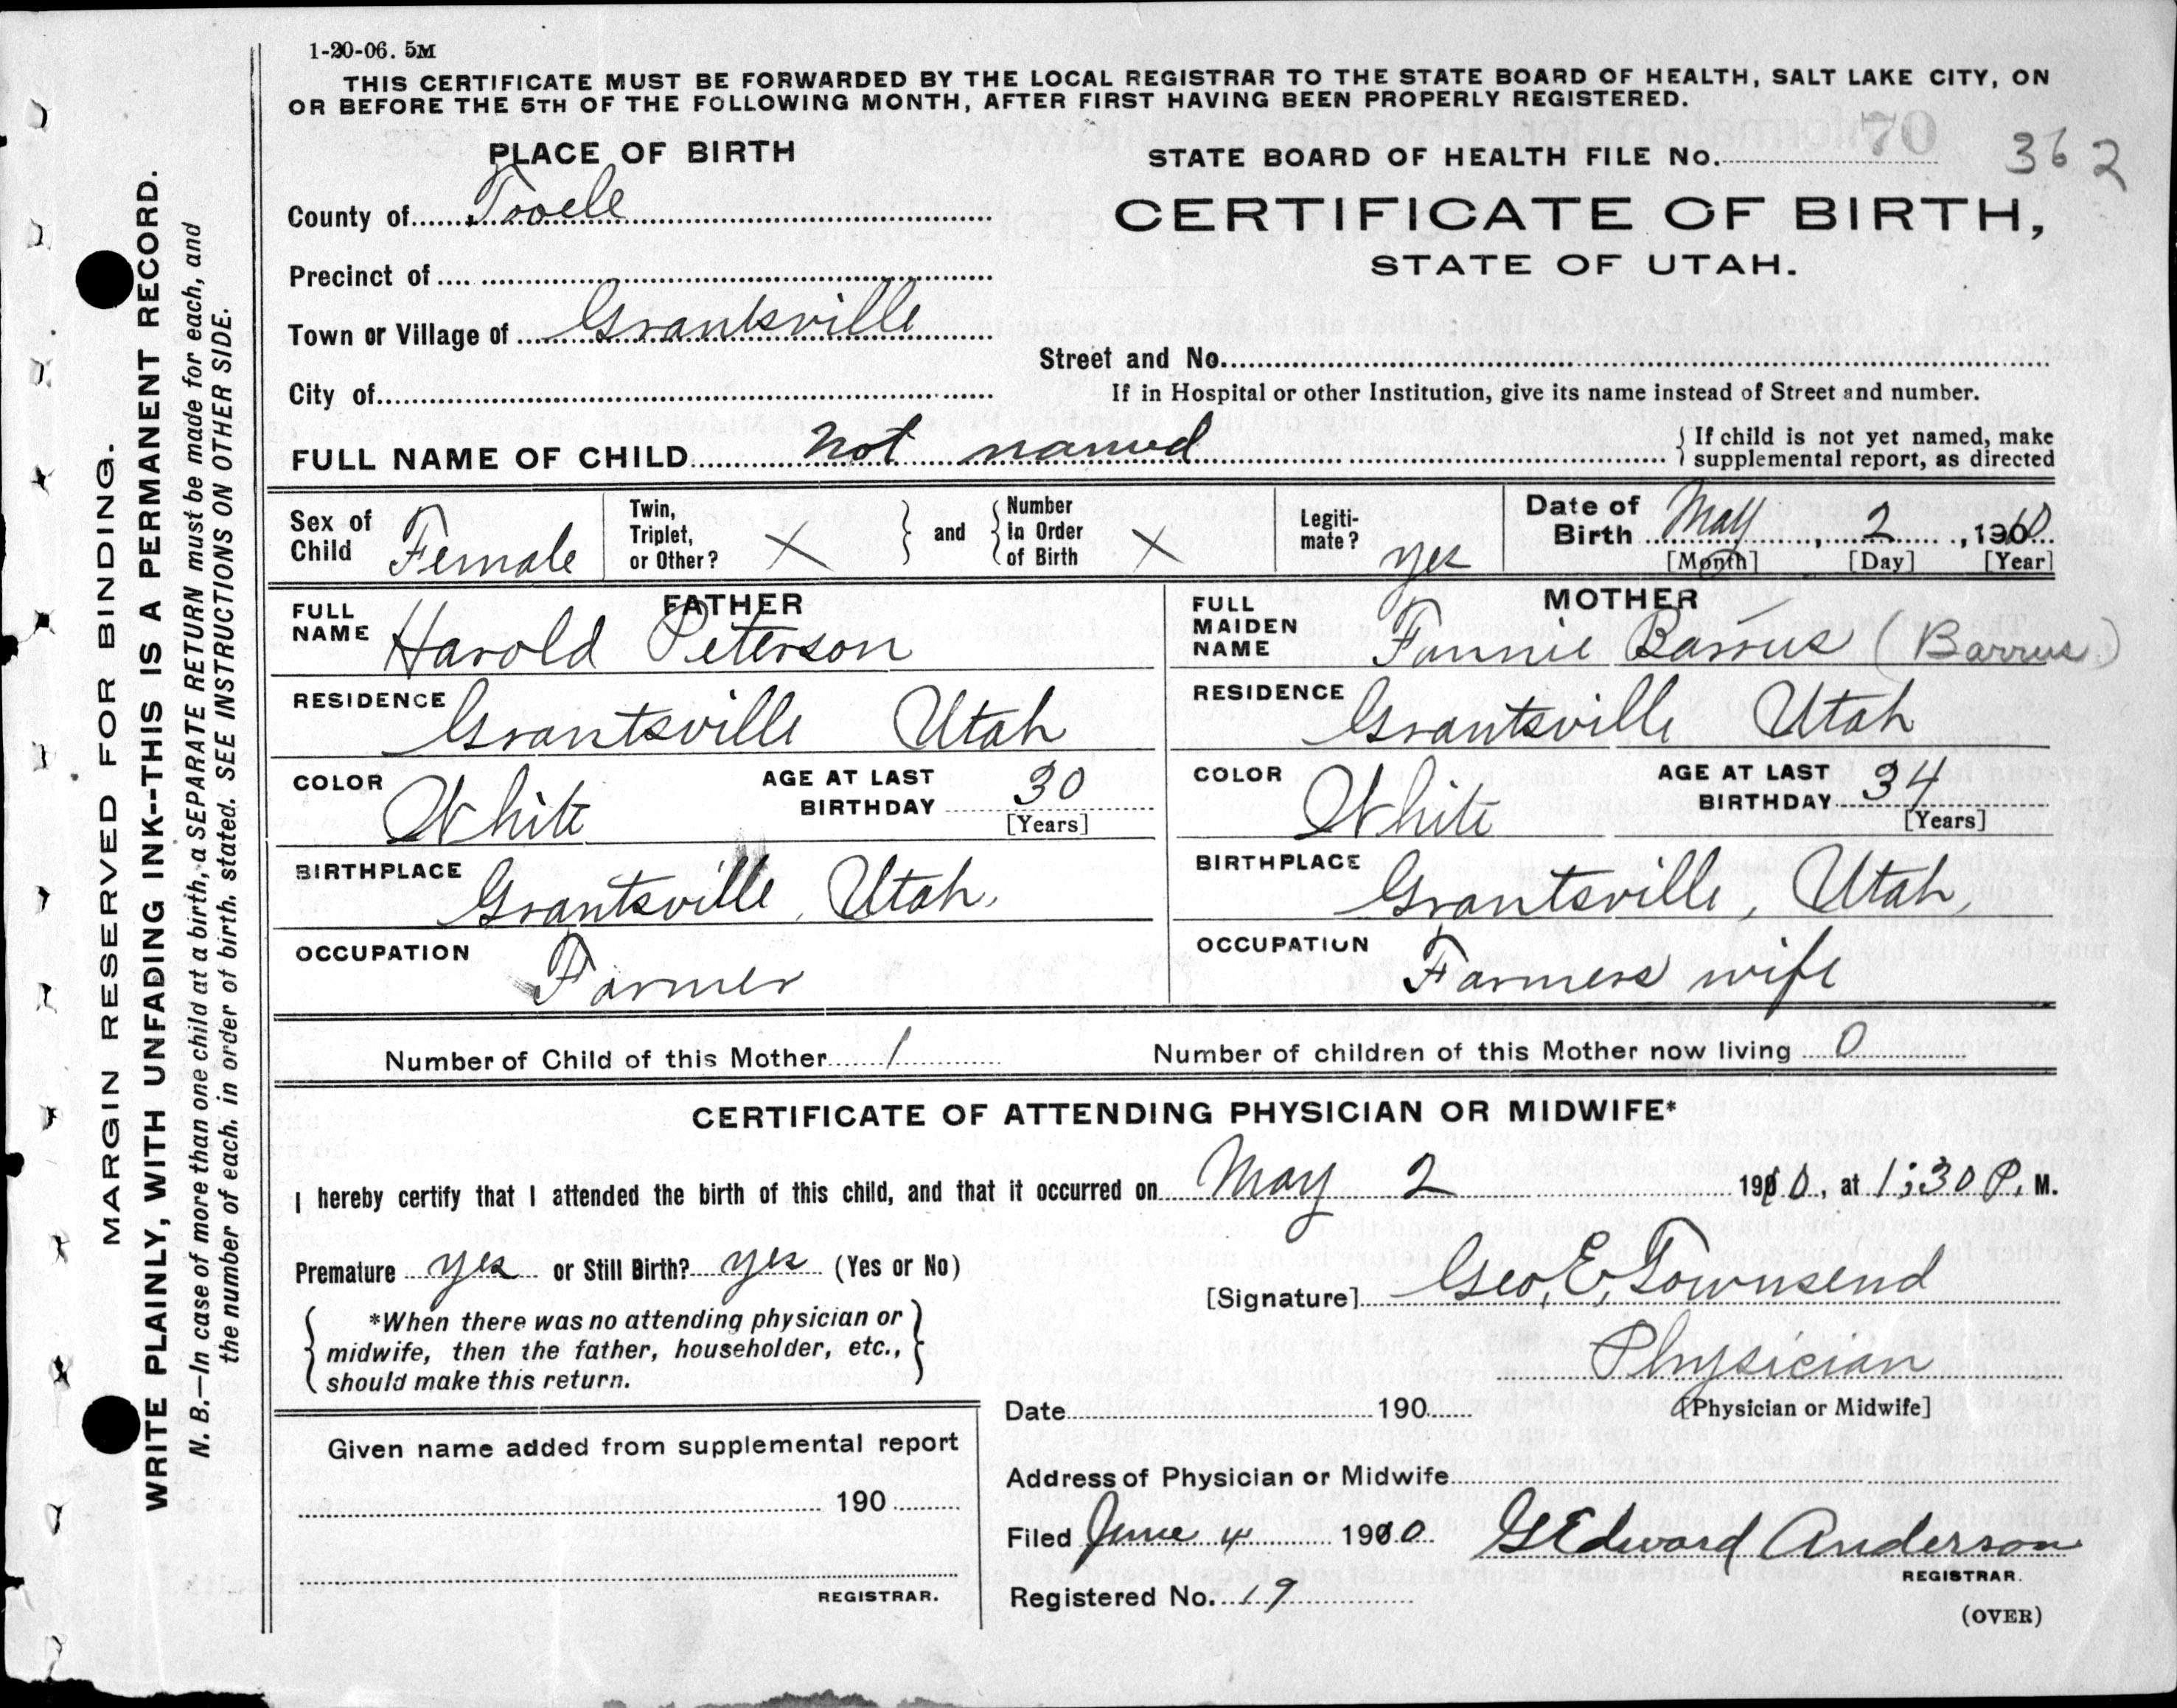 1-20-06. 5M
THIS CERTIFICATE MUST BE FORWARDED BY THE LOCAL REGISTRAR TO THE STATE BOARD OF HEALTH, SALT LAKE CITY, ON
OR BEFORE THE 5TH OF THE FOLLOWING MONTH, AFTER FIRST HAVING BEEN PROPERLY REGISTERED.
PLACE OF BIRTH
STATE BOARD OF HEALTH FILE No. 70 362
County of Tooele
CERTIFICATE OF BIRTH,
STATE OF UTAH.
Precinct of
Town or Village of Grantsville
Street and No.
City of
If in Hospital or other Institution, give its name instead of Street and number.
FULL NAME OF CHILD Not named
{ If child is not yet named, make
supplemental report, as directed
Sex of Child Female
Twin, Triplet, or Other? X } and { Number in Order of Birth X
Legiti-mate? yes
Date of Birth May, 2, 1910
[Month] [Day] [Year]
FATHER
FULL NAME Harold Peterson
RESIDENCE Grantsville Utah
COLOR White AGE AT LAST BIRTHDAY 30
[Years]
BIRTHPLACE Grantsville, Utah.
OCCUPATION Farmer
MOTHER
FULL MAIDEN NAME Fannie Barrus (Barrus)
RESIDENCE Grantsville Utah
COLOR White AGE AT LAST BIRTHDAY 34
[Years]
BIRTHPLACE Grantsville, Utah,
OCCUPATION Farmers wife
Number of Child of this Mother 1 Number of children of this Mother now living 0
CERTIFICATE OF ATTENDING PHYSICIAN OR MIDWIFE*
I hereby certify that I attended the birth of this child, and that it occurred on May 2 1910, at 1:30 P. M.
Premature yes or Still Birth? yes (Yes or No)
[Signature] Geo. E. Townsend
*When there was no attending physician or
midwife, then the father, householder, etc.,
should make this return.
Physician
[Physician or Midwife]
Date 190
Given name added from supplemental report
190
REGISTRAR.
Address of Physician or Midwife
Filed June 4 1910 G Edward Anderson
REGISTRAR.
Registered No. 19
(OVER)
MARGIN RESERVED FOR BINDING.
WRITE PLAINLY, WITH UNFADING INK--THIS IS A PERMANENT RECORD.
N. B.—In case of more than one child at a birth, a SEPARATE RETURN must be made for each, and
the number of each, in order of birth, stated. SEE INSTRUCTIONS ON OTHER SIDE.